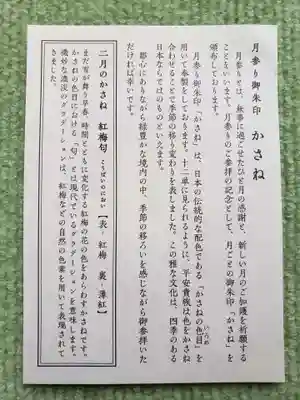 月参り御朱印　かさね
月参りとは、無事に過ごせたひと月の感謝と、新しい月のご加護を祈願する
ことをいいます。月参りのご参拝の記念として、月ごとの御朱印「かさね」を
頒布しております。
月参り御朱印「かさね」は、日本の伝統的な配色である「かさねの色目」を
いろめ
用いて奉製をしております。十二単に見られるように、平安貴族は色をかさね
合わせることで季節の移り変わりを表しました。この雅な文化は、四季のある
日本ならではのものといえます。
都心にありながら緑豊かな境内の中、季節の移ろいを感じながら御参拝いた
だければ幸いです。
二月のかさね　紅梅匂　こうばいのにおい【表・紅梅　裏・薄紅】
まだ雪が舞う早春、時間とともに変化する紅梅の花の色をあらわすかさねです。
かさねの色目における「匂」とは現代でいるグラデーションを意味します。
微妙な濃淡のグラデーションは、紅梅などの自然の色素を用いて表現されて
きました。